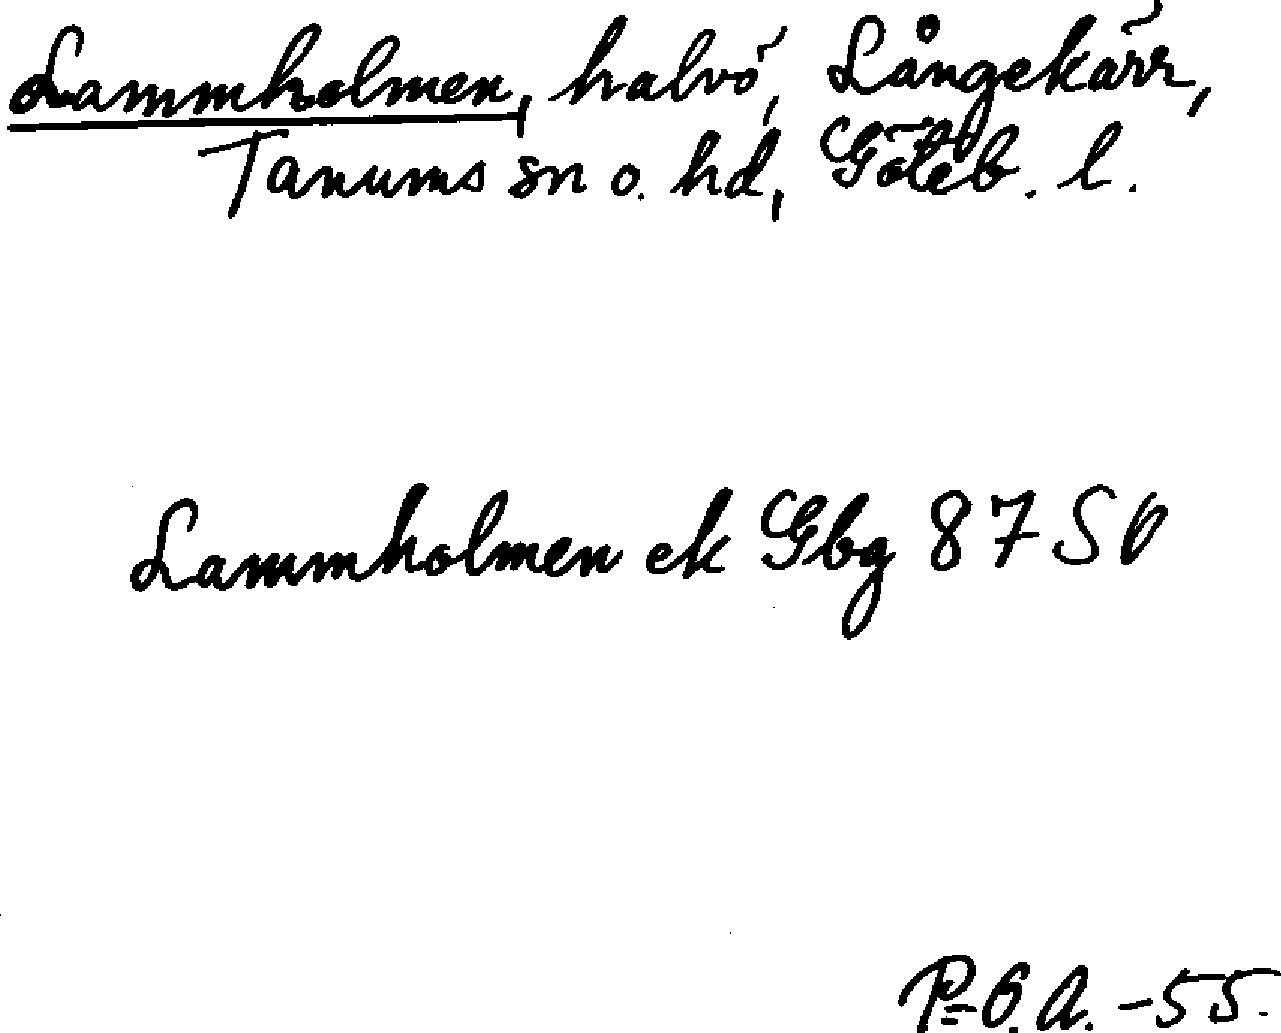 Lammholmen, halvö, Långekärr,
Tanums sn o. hd, Göteb. l.
Lammholmen ek Gbg 87 SV
P-Ö. A. -55.